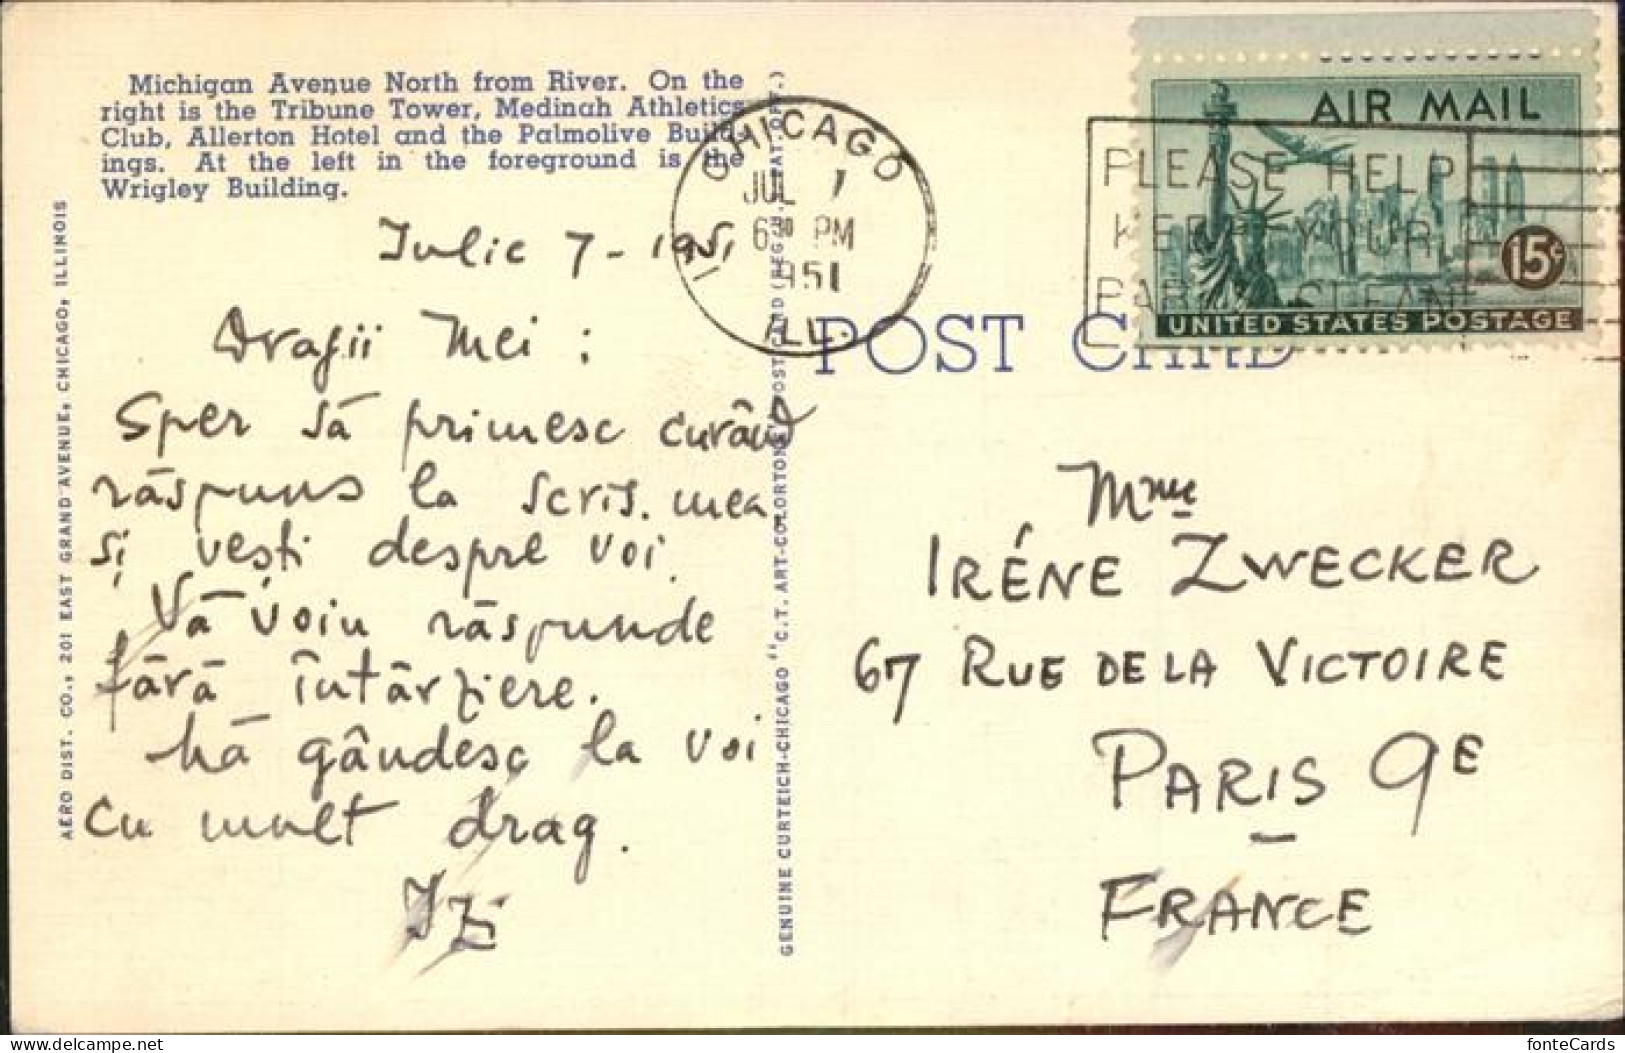 Michigan Avenue North from River. On the
right is the Tribune Tower, Medinah Athletics
Club, Allerton Hotel and the Palmolive Build-
ings. At the left in the foreground is the
Wrigley Building.
Iulie 7 - 1951
Dragii Mei :
Sper să primesc curând
răspuns la scris. mea
și vești despre voi.
Vă voiu răspunde
fără întârziere.
Mă gândesc la voi
cu mult drag.
Izi
AERO DIST. CO., 201 EAST GRAND AVENUE, CHICAGO, ILLINOIS
GENUINE CURTEICH-CHICAGO "C.T. ART-COLORTONE" POST CARD (REG. U.S. PAT. OFF.)
CHICAGO
JUL 7
6 30 PM
1951
ILL.
AIR MAIL
15¢
UNITED STATES POSTAGE
PLEASE HELP
KEEP YOUR
PARKS CLEAN
POST CARD
Mme
IRÉNE ZWECKER
67 RUE DE LA VICTOIRE
PARIS 9E
FRANCE
www.delcampe.net
fonteCards